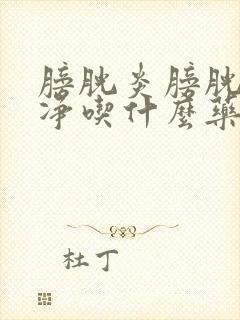 膀胱炎膀胱
净喫什麼藥
杜丁